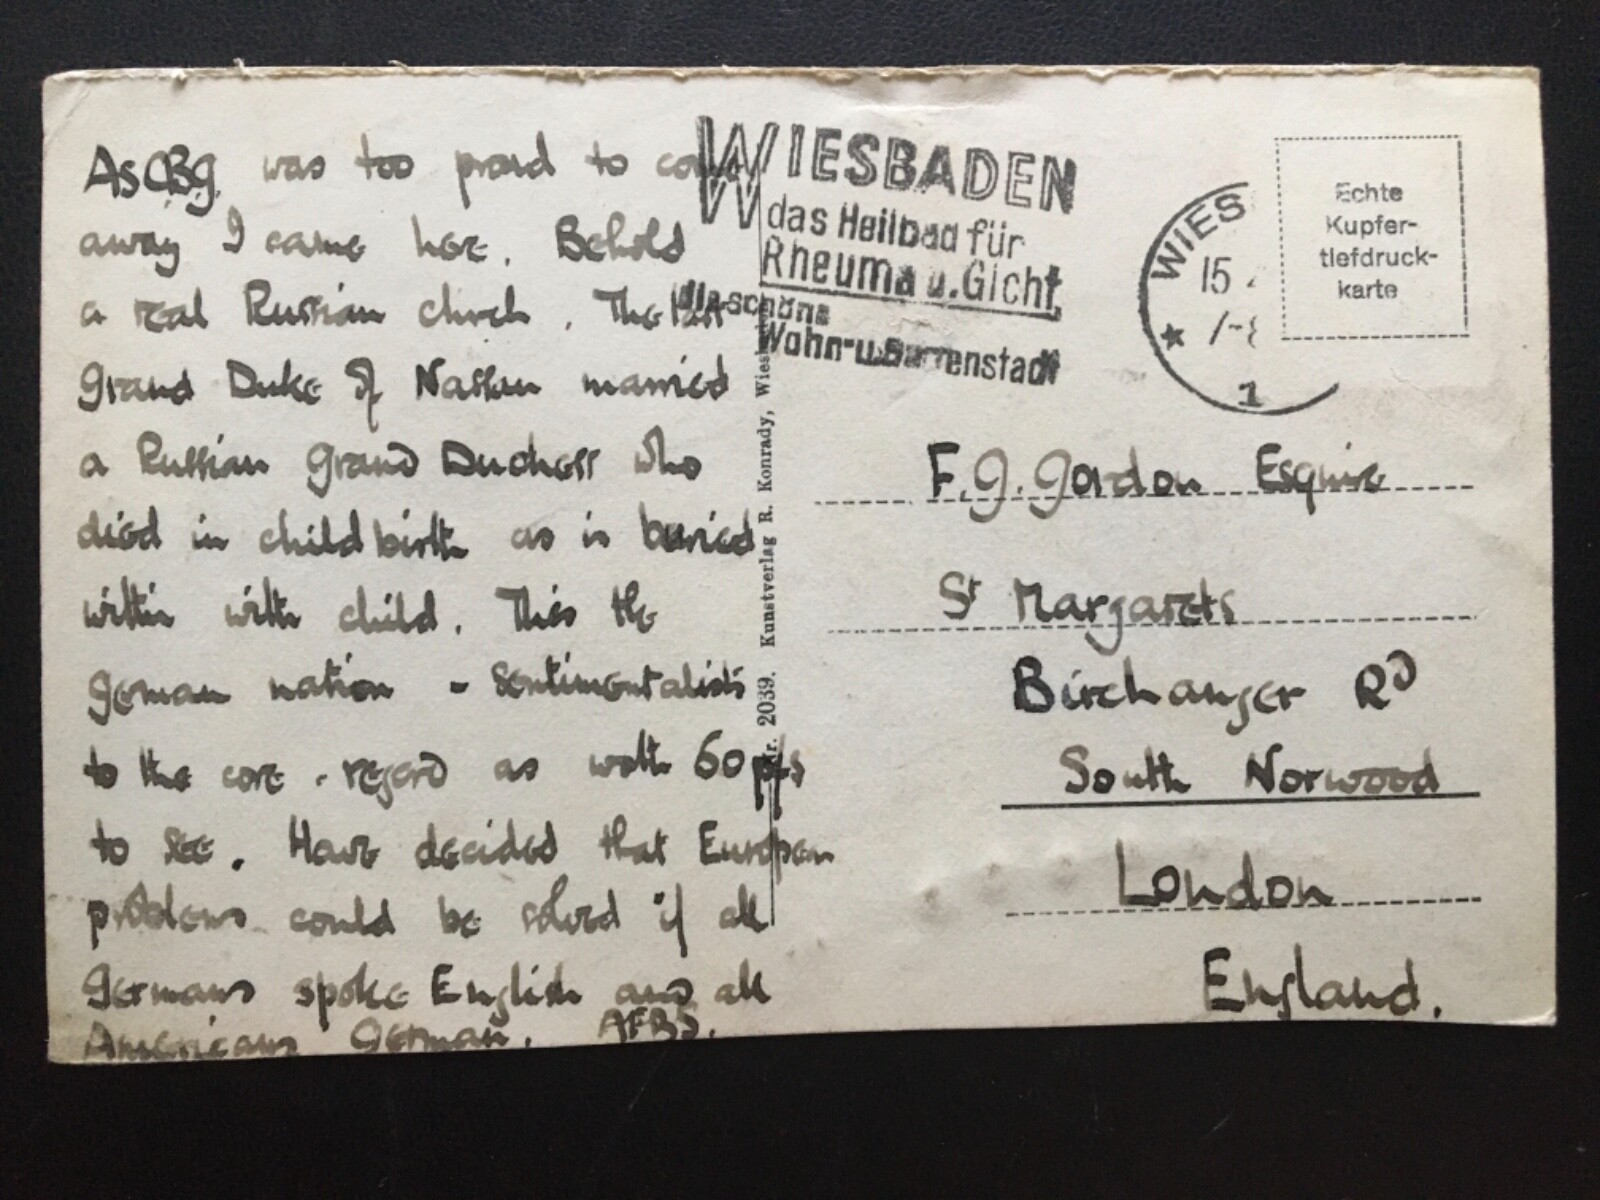 As CBG. was too proud to come
away I came here. Behold
a real Russian church. The last
Grand Duke of Nassau married
a Russian Grand Duchess who
died in childbirth as is buried
within with child. This the
German nation - sentimentalists
to the core - regard as worth 60 pfs
to see. Have decided that European
problems could be solved if all
Germans spoke English and all
Americans German. AFBS.
WIESBADEN
das Heilbad für
Rheuma u. Gicht
die schöne
Wohn- u. Gartenstadt
WIES
15
1
Echte
Kupfer-
tiefdruck-
karte
Nr. 2039. Kunstverlag R. Konrady, Wiesbaden
F. G. Gordon Esquire
St Margarets
Birchanger RD
South Norwood
London
England.